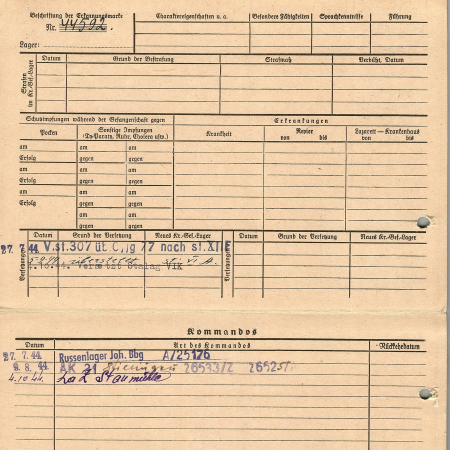 Beschriftung der Erkennungsmarke
Nr. 44592.
Lager:
Charaktereigenschaften u. a.
Besondere Fähigkeiten
Sprachkenntnisse
Führung
Strafen im Kr.-Gef.-Lager
Datum
Grund der Bestrafung
Strafmaß
Verbüßt, Datum
Schutzimpfungen während der Gefangenschaft gegen
Erkrankungen
Pocken
Sonstige Impfungen
(Ty-Paraty, Ruhr, Cholera usw.)
Krankheit
Revier
von bis
Lazarett — Krankenhaus
von bis
am am am
Erfolg gegen gegen
am am am
Erfolg gegen gegen
am am am
Erfolg gegen gegen
am am am
Erfolg gegen gegen
Versetzungen
Datum
Grund der Versetzung
Neues Kr.-Gef.-Lager
Versetzungen
Datum
Grund der Versetzung
Neues Kr.-Gef.-Lager
27. 7. 44 V. st. 307 üt nach st.
4.10.44. Versetzt Stalag VIK
Kommandos
Datum
Art des Kommandos
Rückkehrdatum
27. 7. 44. Russenlager Joh. Bbg A/25176
9. 8. 44 AK 21 26533/Z
4.10.44 Staumühle